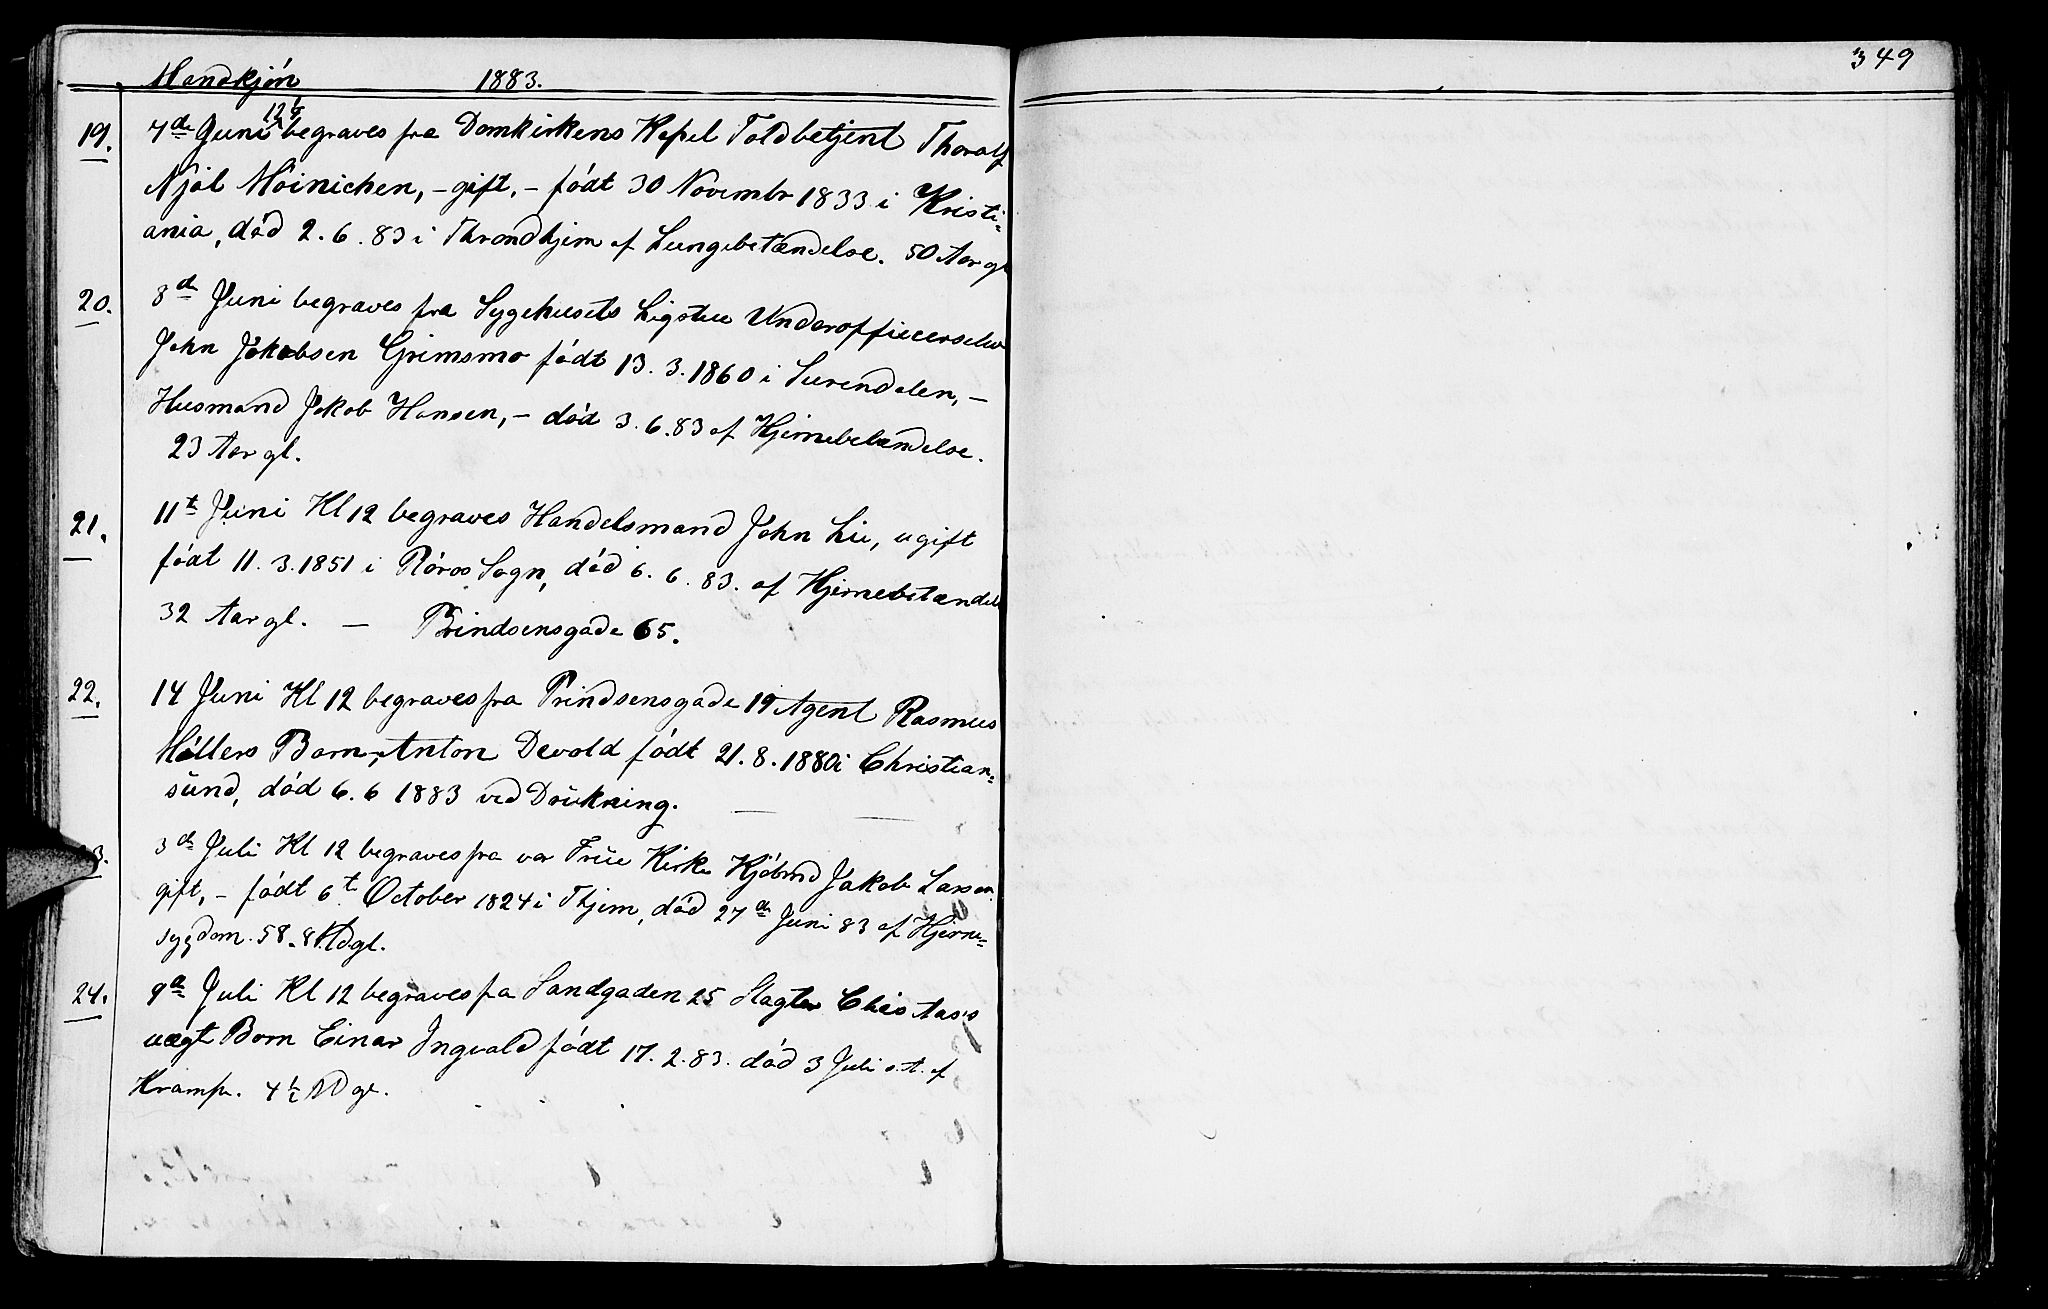 Mandkjön 1883.
349
19. 7d Juni 12½ begraves fra Domkirkens Kapel Toldbetjent Thoralf
Njål Möinichen, - gift, - födt 30 Novembr 1833 i Kristi-
ania, död 2.6.83 i Throndhjem af Lungebetændelse. 50 Aar gl
20. 8d Juni begraves fra Sygehusets Ligstue Underofficerselev
John Jakobsen Grimsmo födt 13.3.1860 i Surendalen, -
Husmand Jakob Hansen, - död 3.6.83 af Hjernebetændelse.
23 Aar gl.
21. 11t Juni Kl 12 begraves Handelsmand John Lie, ugift
födt 11.3.1851 i Röros Sogn, död 6.6.83. af Hjernebetændels
32 Aar gl. — Prindsensgade 65.
22. 14 Juni Kl 12 begraves fra Prindsensgade 19 Agent Rasmus
Möllers Barn, Anton Devold födt 21.8.1880 i Christian-
sund, död 6.6 1883 ved Drukning.
23. 3d Juli Kl 12 begraves fra vor Frue Kirke Kjöbmd Jakob Larsen
gift, - födt 6t October 1824 i Thjem, död 27de Juni 83 af Hjerne-
sygdom. 58 8 Md gl.
24. 9d Juli Kl 12 begraves fra Sandgaden 25 Slagter Chris Aas's
uægt Barn Einar Ingvald födt 17.2.83. död 3 Juli s.A. af
Krampe. 4½ Md gl.